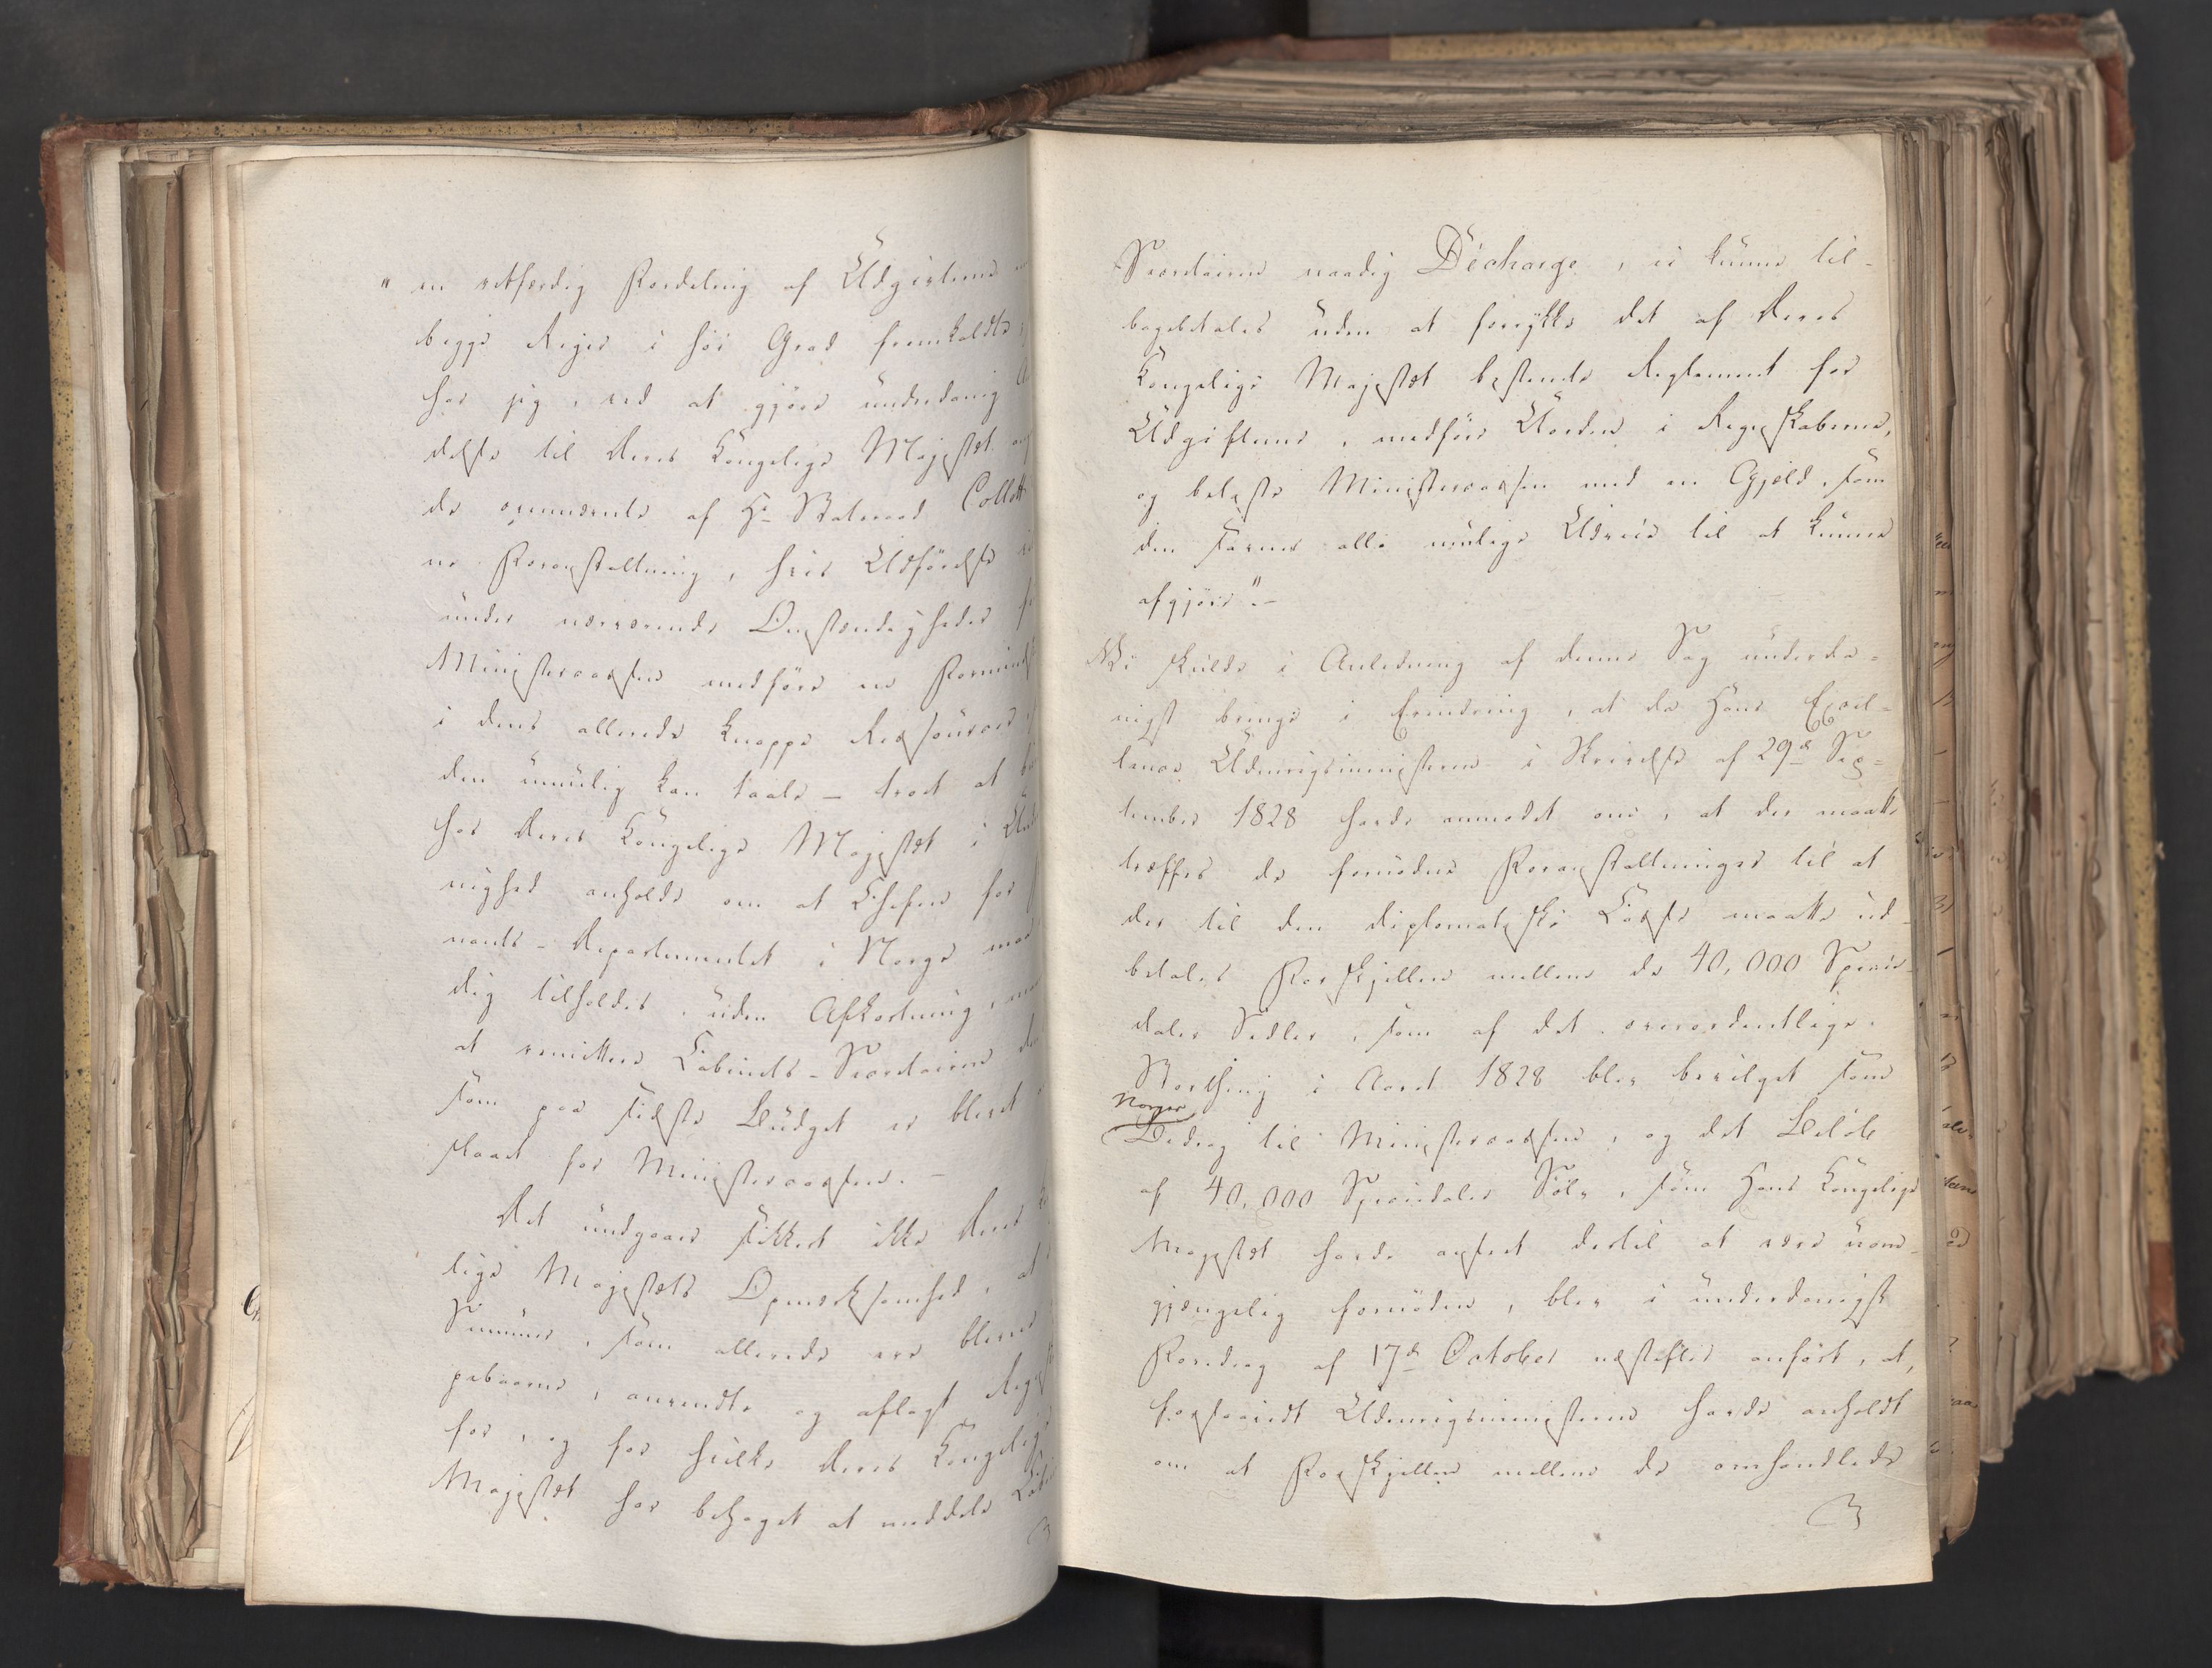 " en retfærdig Fordeling af Udgifterne
begge Riger i höi Grad fremkaldte
har jeg, ved at gjöre underdanig
delse til Deres Kongelige Majestæt
de ommeldte af Hr Statsraad Collett
ne Foranstaltning, hvis Udförelse
under nærværende Omstændigheder
Ministercassen medföre en Formind
i dens allerede knappe Ressourcer
den umulig kan taale – troet at
hos Deres Kongelige Majestæt i Under
nighed anholde om at Chefen for
nants-Departementet i Norge maa
dig tilholdes, uden Afkortning,
at remittere Cabinets-Secretairen
som paa sidste Budget er blevet
slaaet for Ministercassen. –
Det undgaaer sikkert ikke Deres
lige Majestæts Opmærksomhed, at
Summer, som allerede ere blevne
pebaarne, anvendte og aflagt Regnsk
for, og for hvilke Deres Kongelige
Majestæt har behaget at meddele Cabi
Secretairen naadig Décharge, ei kunne til-
bagebetales uden at forrykke det af Deres
Kongelige Majestæt bestemte Reglement for
Udgifterne, medföre Uorden i Regnskaberne,
og belæste Ministercassen med en Gjeld, som
den savner alle mulige Udveie til at kunne
afgjöre". –
Vi skulde i Anledning af denne Sag underda-
nigst bringe i Erindring, at da Hans Excel-
lence Udenrigsministeren i Skrivelse af 29de Sep-
tember 1828 havde anmodet om, at der maatte
træffes de fornödne Foranstaltninger til at
der til den diplomatiske Casse maatte ud-
betales Forskjellen mellem de 40,000 Specie-
daler Sedler, som af det overordentlige
Storthing i Aaret 1828 blev bevilget som
Norges
Bidrag til Ministercassen, og det Belöb
af 40,000 Speciedaler Sölv, som Hans Kongelige
Majestæt havde anseet dertil at være uom-
gjængelig fornöden, blev i underdanigst
Foredrag af 17de October næstefter anfört, at,
forsaavidt Udenrigsministeren havde anholdt
om at Forskjellen mellem de omhandlede